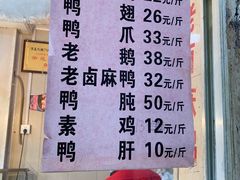 鸭翅 26元/斤
鸭爪 33元/斤
老鹅 38元/斤
老卤麻鸭 32元/斤
鸭肫 50元/斤
素鸡 12元/斤
鸭肝 10元/斤